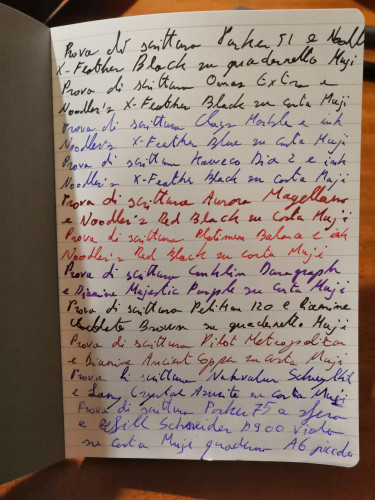 Prova di scrittura Parker 51 e Noodler
X-Feather Black su quadernetto Muji
Prova di scrittura Omas Extra e
Noodler's X-Feather Black su carta Muji
Prova di scrittura Marble e ink
Noodler's X-Feather Blue su carta Muji
Prova di scrittura Kaweco Dia 2 e ink
Noodler's X-Feather Black su carta Muji
Prova di scrittura Aurora Magellano
e Noodler's Red Black su carta Muji
Prova di scrittura Platinum Balance e ink
Noodler's Red Black su carta Muji
Prova di scrittura Conklin Duragraph
e Diamine Majestic Purple su carta Muji
Prova di scrittura Pelikan 120 e Diamine
Chocolate Brown su quadernetto Muji
Prova di scrittura Pilot Metropolitan
e Diamine Ancient Copper su carta Muji
Prova di scrittura Nahvalur Schuylkill
e Lamy Crystal Azurite su carta Muji
Prova di scrittura Parker 75 a sfera
e refill Schneider 900 Viola
su carta Muji quaderno A6 piccolo